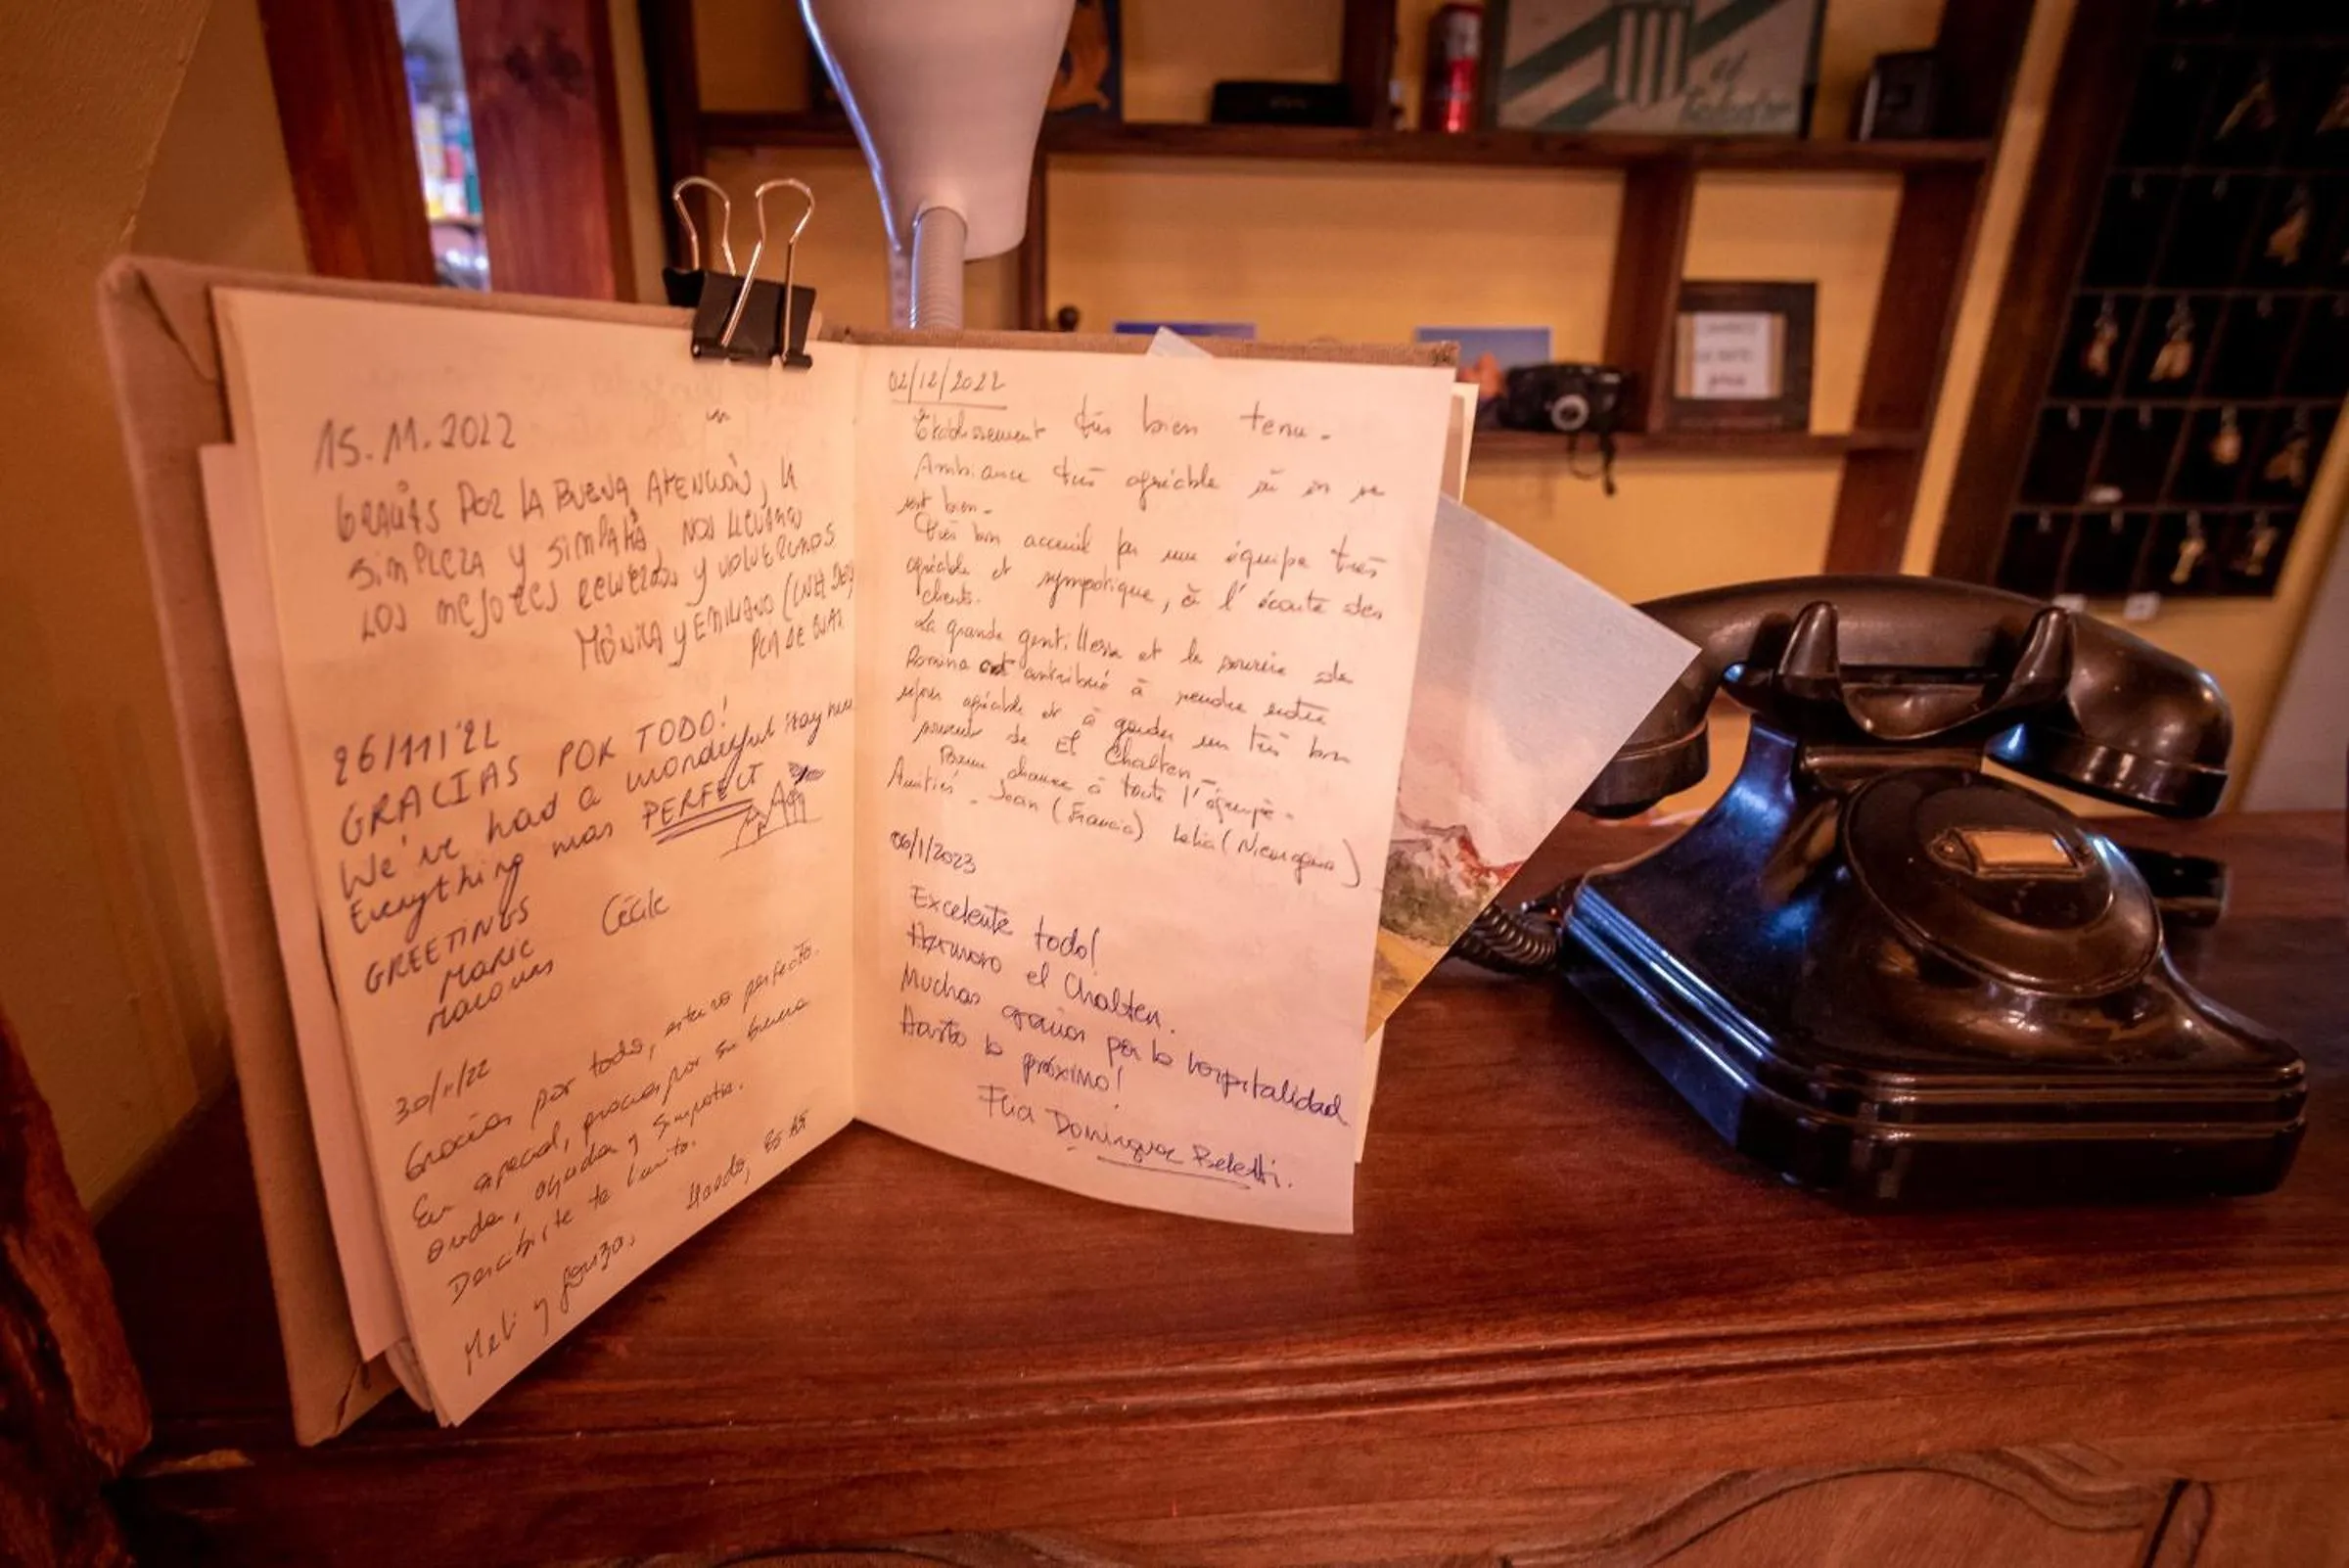 15.11.2022
GRACIAS POR LA BUENA ATENCIÓN, LA
SIMPLEZA Y SIMPATÍA, NOS LLEVAMOS
LOS MEJORES RECUERDOS Y VOLVEREMOS
MÓNICA Y EMILIANO
PCIA DE BUAI
26/11/'22
GRACIAS POR TODO!
We've had a wonderful stay here
Everything was PERFECT
GREETINGS
MARIE Cécile
30/11/22
Gracias por todo, estuvo perfecto.
En especial, gracias por su buena
onda, ayuda y simpatía.
Meli y Gonza. Haedo, BS AS
02/12/2022
Établissement très bien tenu.
Ambiance très agréable où on se
sent bien.
Très bon accueil par une équipe très
agréable et sympatique, à l'écoute des
clients.
La grande gentillesse et le sourire de
Romina ont contribué à rendre notre
séjour agréable et à garder un très bon
souvenir de El Chalten.
Bonne chance à toute l'équipe.
Amitiés. Jean (Francia) Lelia (Nicaragua)
06/1/2023
Excelente todo!
Hermoso el Chalten.
Muchas gracias por la hospitalidad
Hasta la próximo!
Flia Dominguez Beletti.